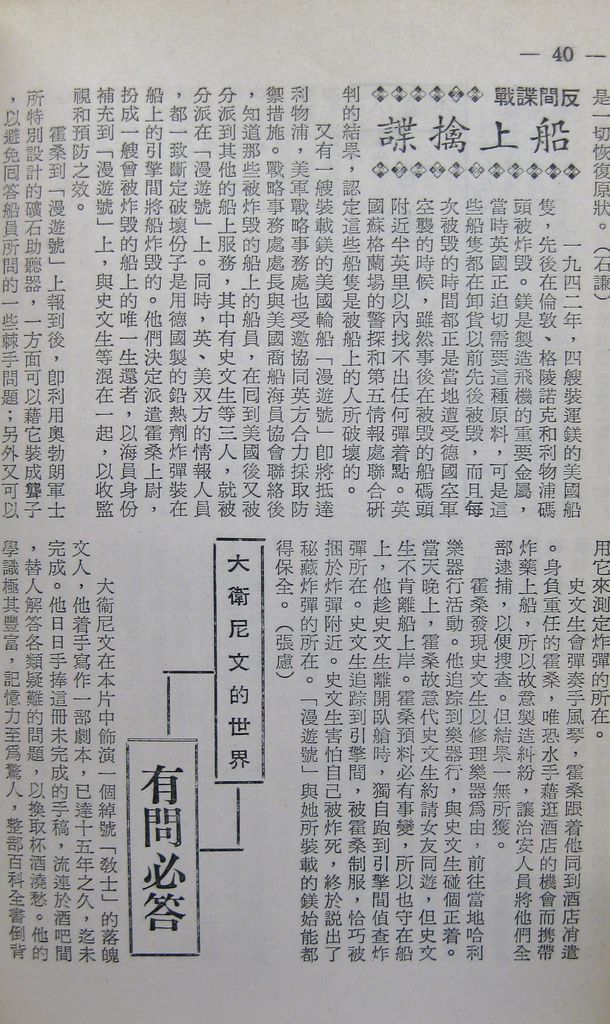 — 40 —
是一切恢復原狀。(石謙)
反間諜戰
船上擒諜
一九四二年，四艘裝運鎂的美國船
隻，先後在倫敦、格陵諾克和利物浦碼
頭被炸毀。鎂是製造飛機的重要金屬，
當時英國正迫切需要這種原料，可是這
些船隻都在卸貨以前先後被毀，而且每
次被毀的時間都正是當地遭受德國空軍
空襲的時候，雖然事後在被毀的船碼頭
附近半英里以內找不出任何彈着點。英
國蘇格蘭場的警探和第五情報處聯合研
判的結果，認定這些船隻是被船上的人所破壞的。
又有一艘裝載鎂的美國輪船「漫遊號」即將抵達
利物浦，美軍戰略事務處也受邀協同英方合力採取防
禦措施。戰略事務處處長與美國商船海員協會聯絡後
，知道那些被炸毀的船上的船員，在囘到美國後又被
分派到其他的船上服務，其中有史文生等三人，就被
分派在「漫遊號」上。同時，英、美双方的情報人員
，都一致斷定破壞份子是用德國製的鉛熱劑炸彈裝在
船上的引擎間將船炸毀的。他們決定派遣霍桑上尉，
扮成一艘曾被炸毀的船上的唯一生還者，以海員身份
補充到「漫遊號」上，與史文生等混在一起，以收監
視和預防之效。
霍桑到「漫遊號」上報到後，卽利用奧勃朗軍士
所特別設計的礦石助聽器，一方面可以藉它裝成聾子
，以避免囘答船員所問的一些棘手問題；另外又可以
用它來測定炸彈的所在。
史文生會彈奏手風琴，霍桑跟着他同到酒店消遣
。身負重任的霍桑，唯恐水手藉逛酒店的機會而携帶
炸藥上船，所以故意製造糾紛，讓治安人員將他們全
部逮捕，以便搜查。但結果一無所獲。
霍桑發現史文生以修理樂器爲由，前往當地哈利
樂器行活動。他追踪到樂器行，與史文生碰個正着。
當天晚上，霍桑故意代史文生約請女友同遊，但史文
生不肯離船上岸。霍桑預料必有事變，所以也守在船
上，他趁史文生離開臥艙時，獨自跑到引擎間偵查炸
彈所在。史文生追踪到引擎間，被霍桑制服，恰巧被
捆於炸彈附近。史文生害怕自己被炸死，終於説出了
秘藏炸彈的所在。「漫遊號」與她所裝載的鎂始能都
得保全。(張慮)
大衛尼文的世界
有問必答
大衛尼文在本片中飾演一個綽號「敎士」的落魄
文人，他着手寫作一部劇本，已達十五年之久，迄未
完成。他日日手捧這冊未完成的手稿，流連於酒吧間
，替人解答各類疑難的問題，以換取杯酒澆愁。他的
學識極其豐富，記憶力至爲驚人，整部百科全書倒背